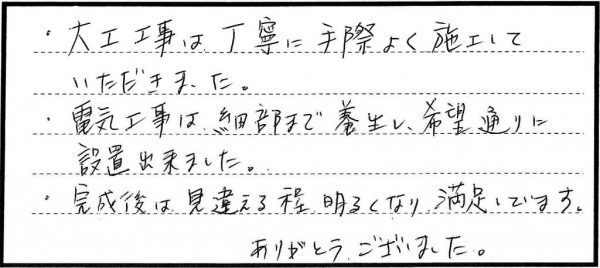 ・大工工事は丁寧に手際よく施工して
いただきました。
・電気工事は、細部まで養生し、希望通りに
設置出来ました。
・完成後は見違える程明るくなり満足しています。
ありがとうございました。